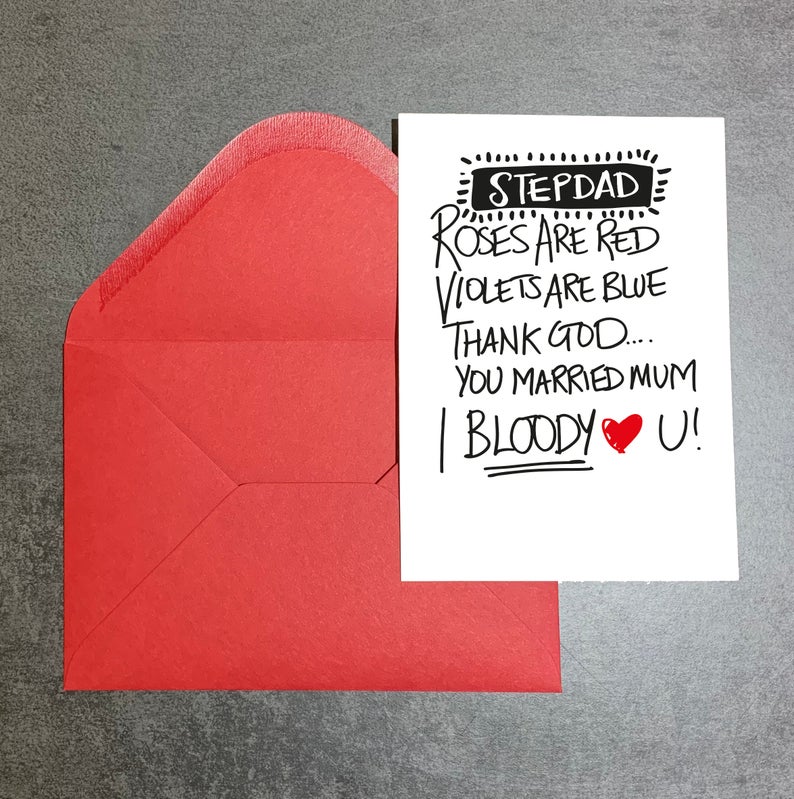 STEPDAD
ROSES ARE RED
VIOLETS ARE BLUE
THANK GOD....
YOU MARRIED MUM
I BLOODY ❤ U!